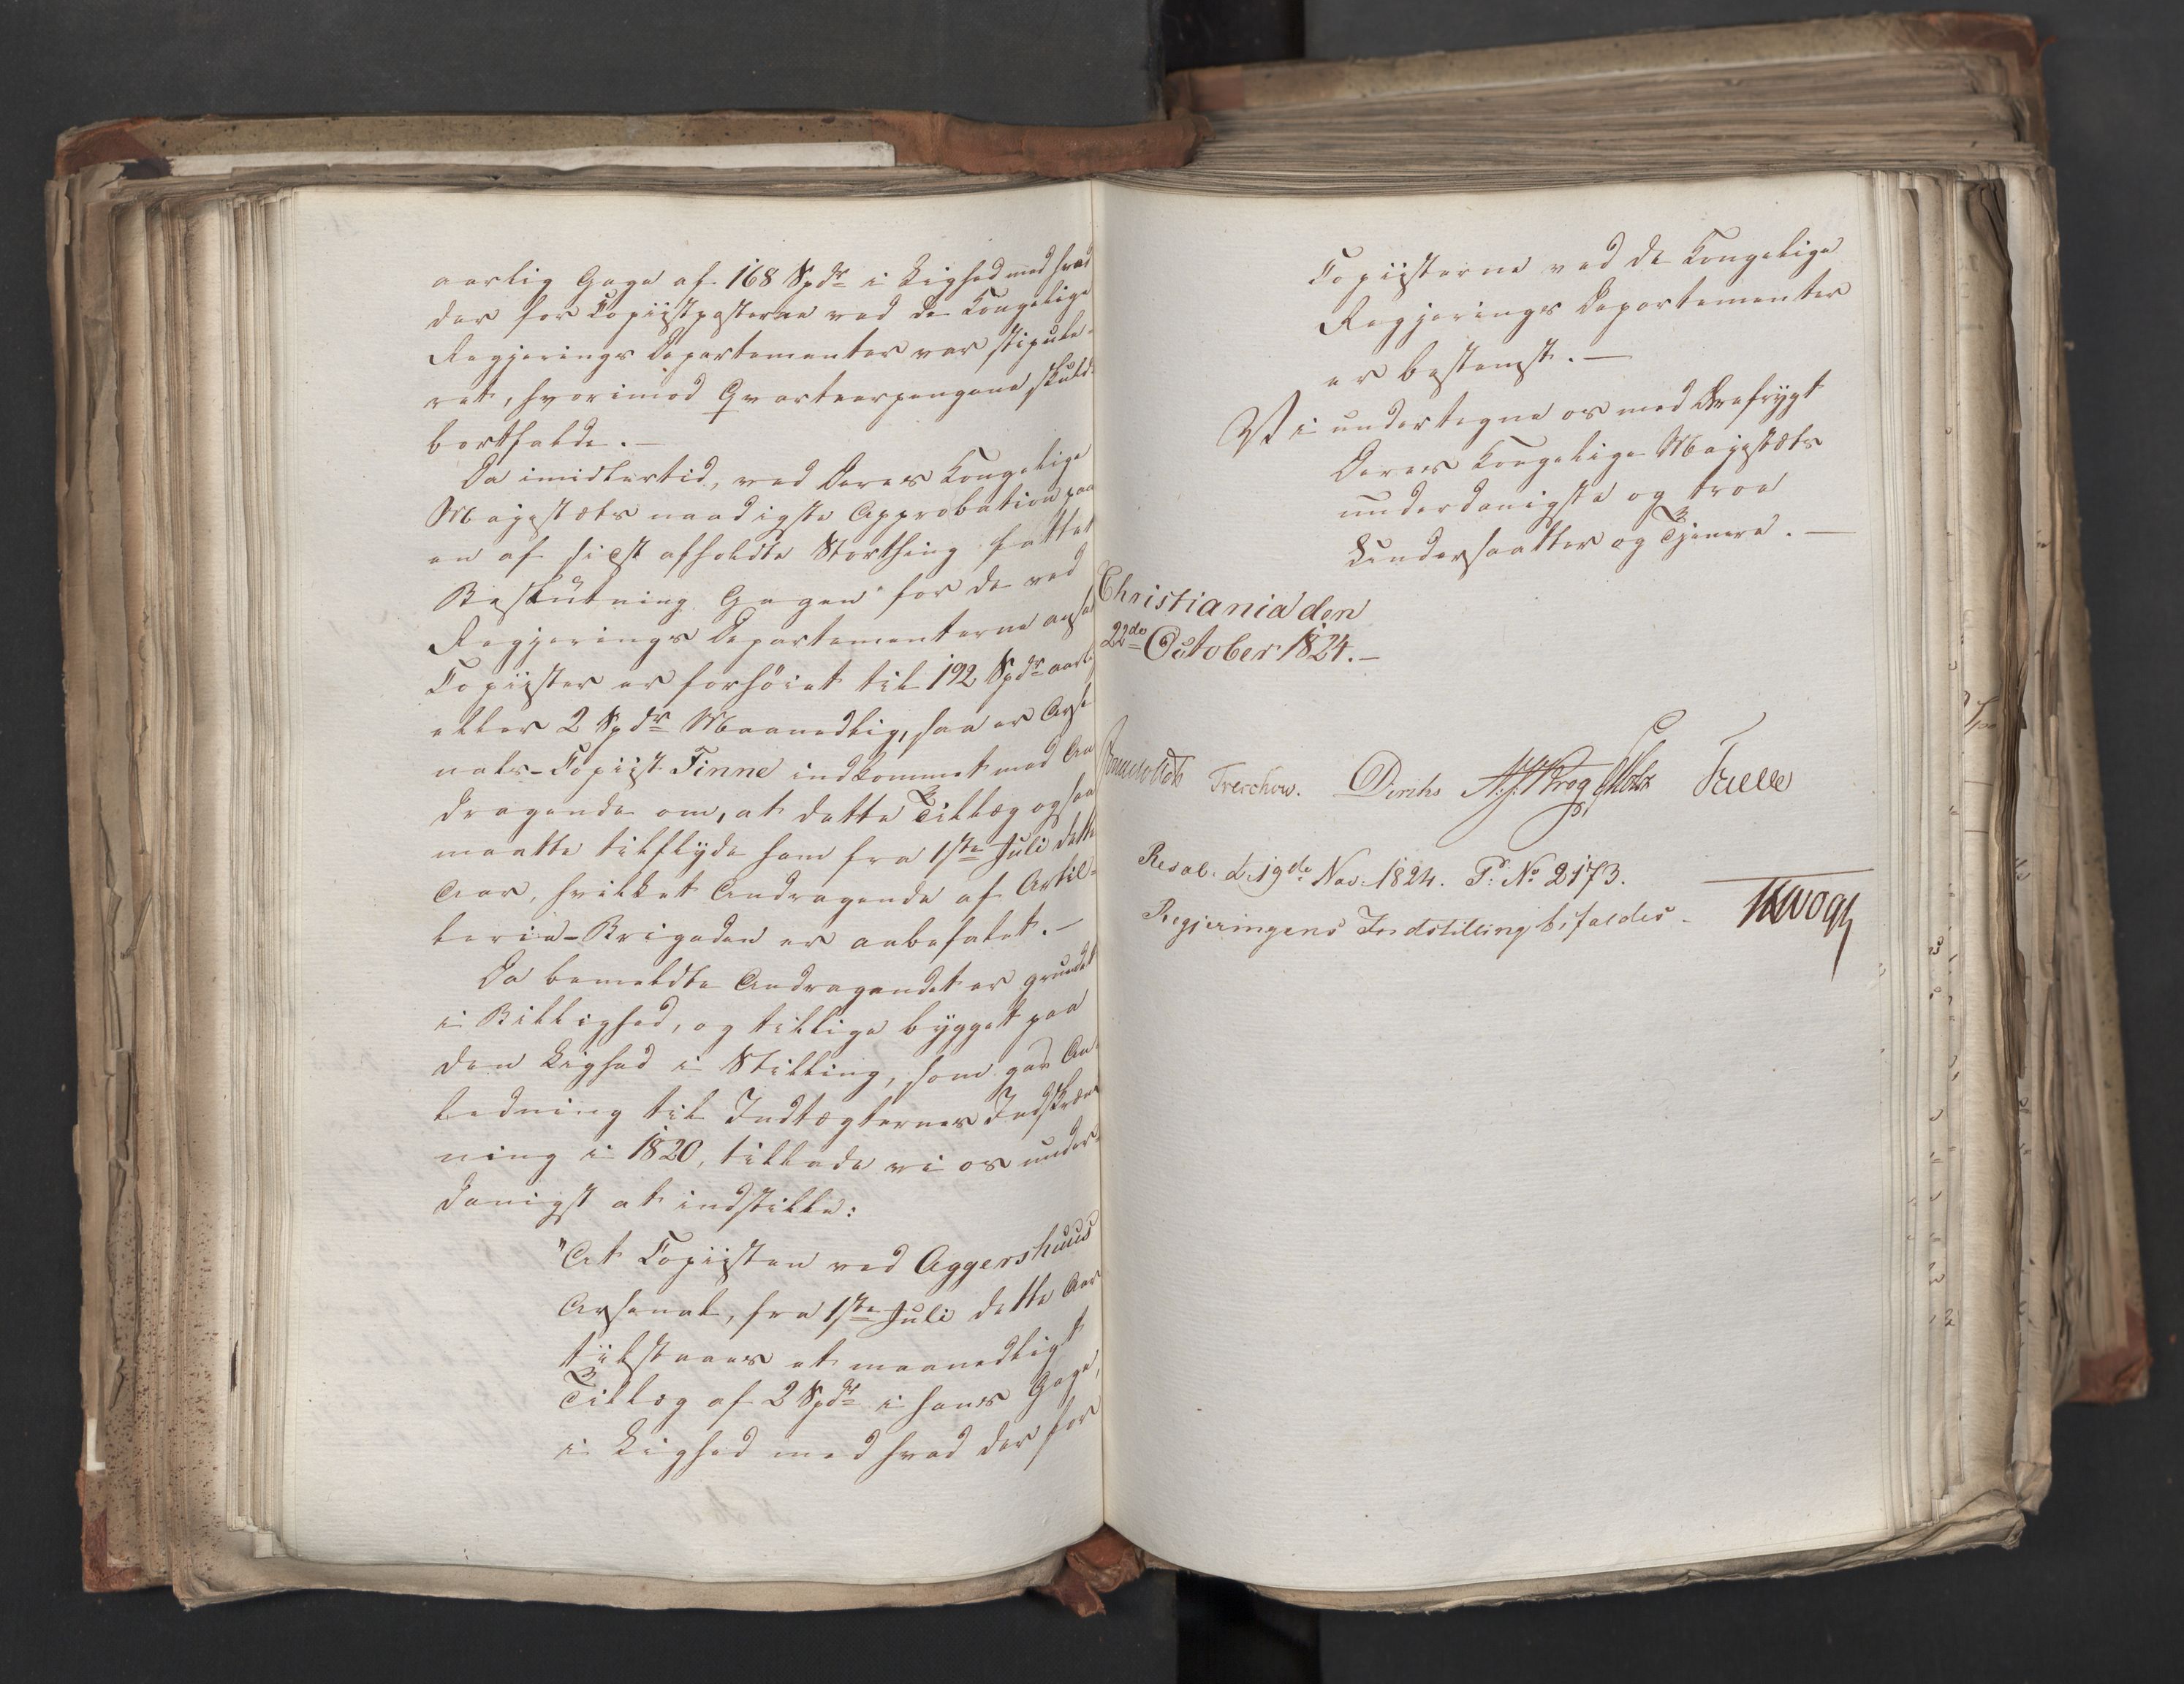 aarlig Gage af 168 Spdr i Lighed med hvad
der for Copiistposterne ved de Kongelige
Regjerings Departementer var stipule-
ret, hvorimod Qvarteerpengene skulde
bortfalde. —
Da imidlertid, ved Deres Kongelige
Majestæts naadigste Approbation paa
en af sidst afholdte Storthing fattet
Beslutning Gagen for de ved
Regjerings Departementerne ansat
Copiister er forhöiet til 192 Spdr aarlig
eller 2 Spdr Maanedlig, saa er Arse
nals-Copiist Finne indkommet med An
dragende om, at dette Tillæg ogsaa
maatte tilflyde ham fra 1ste Juli dette
Aar, hvilket Andragende af Artil-
lerie-Brigaden er anbefalet. —
Da bemeldte Andragendet er grundet
i Billighed, og tillige bygget paa
den Lighed i Stilling, som gav An-
ledning til Indtægternes Indskræn
ning i 1820, tillade vi os under-
danigst at indstille:
"At Copiisten ved Aggershuus
Arsenal, fra 1ste Juli dette Aar
tilstaaes et maanedligt
Tillæg af 2 Spdr i hans Gage,
i Lighed med hvad der for
Copiisterne ved de Kongelige
Regjerings Departementer
er bestemt. —
Vi undertegne os med Ærefrygt
Deres Kongelige Majestæts
underdanigste og troe
Undersaatter og Tjenere. —
Christiania den
22de October 1824. —
Treschow. Diriks Krog Fasting
Resol. d. 19de Nov. 1824. P: No 2173.
Regjeringens Indstilling bifaldes -